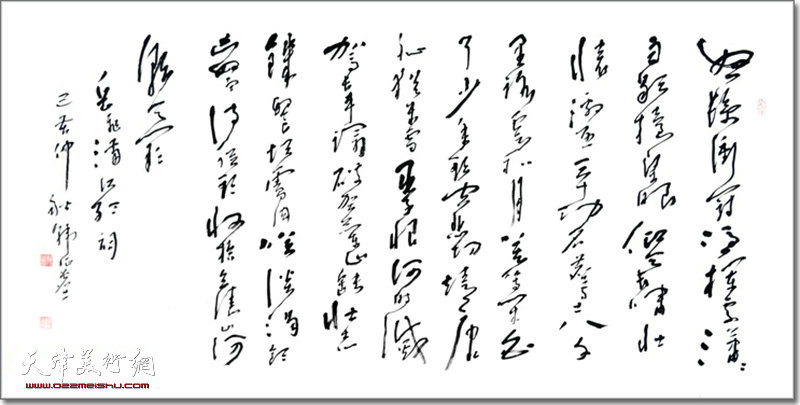 怒髮衝冠憑欄處瀟瀟
雨歇抬望眼仰天長嘯壯
懷激烈三十功名塵與土八千
里路雲和月莫等閒白
了少年頭空悲切靖康
恥猶未雪臣子恨何時滅
駕長車踏破賀蘭山缺壯志
饑餐胡虜肉笑談渴飲
匈奴血待從頭收拾舊山河
朝天闕
岳飛滿江紅詞
己亥仲秋
天津美術網
www.022meishu.com